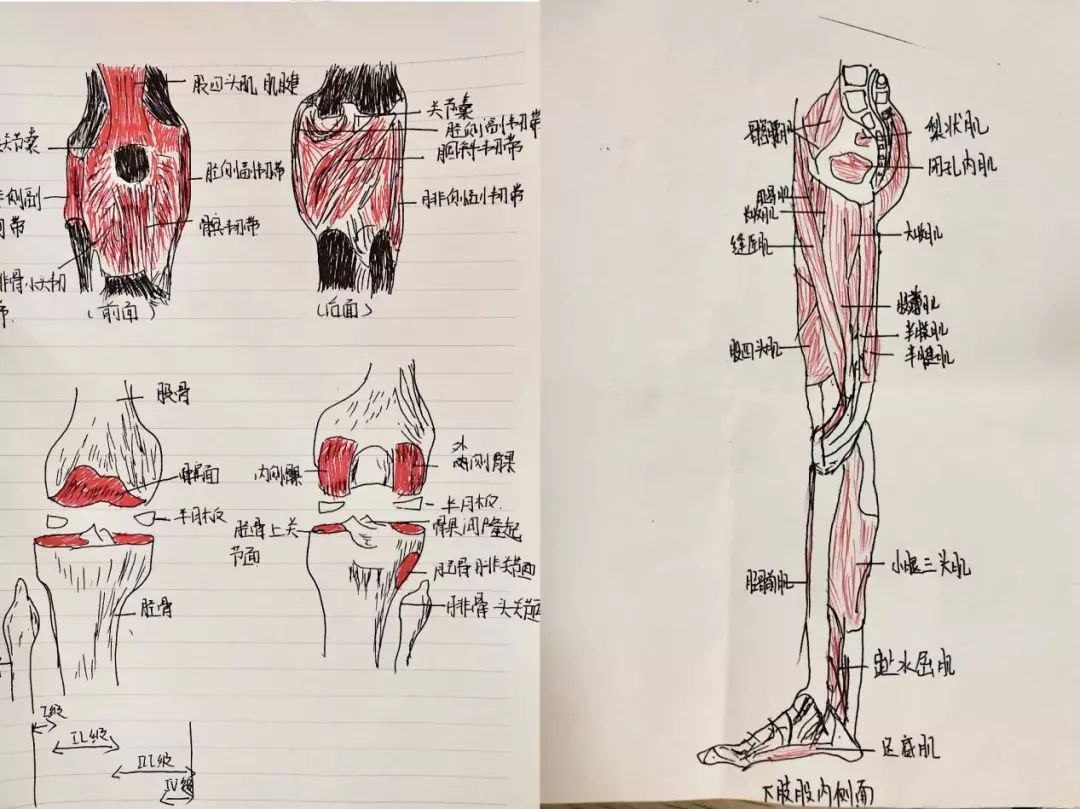 股四头肌 肌腱
关节囊
胫侧副韧带
髌韧带
(前面)
关节囊
胫侧副韧带
腘斜韧带
腓侧副韧带
(后面)
股骨
髌面
半月板
胫骨
内侧髁
外侧髁
半月板
髁间隆起
胫骨上关
节面
胫骨腓关节面
腓骨头关节面
I级
II级
III级
IV级
梨状肌
闭孔内肌
缝匠肌
大收肌
股薄肌
半膜肌
半腱肌
股四头肌
胫骨前肌
小腿三头肌
足底肌
下肢股内侧面